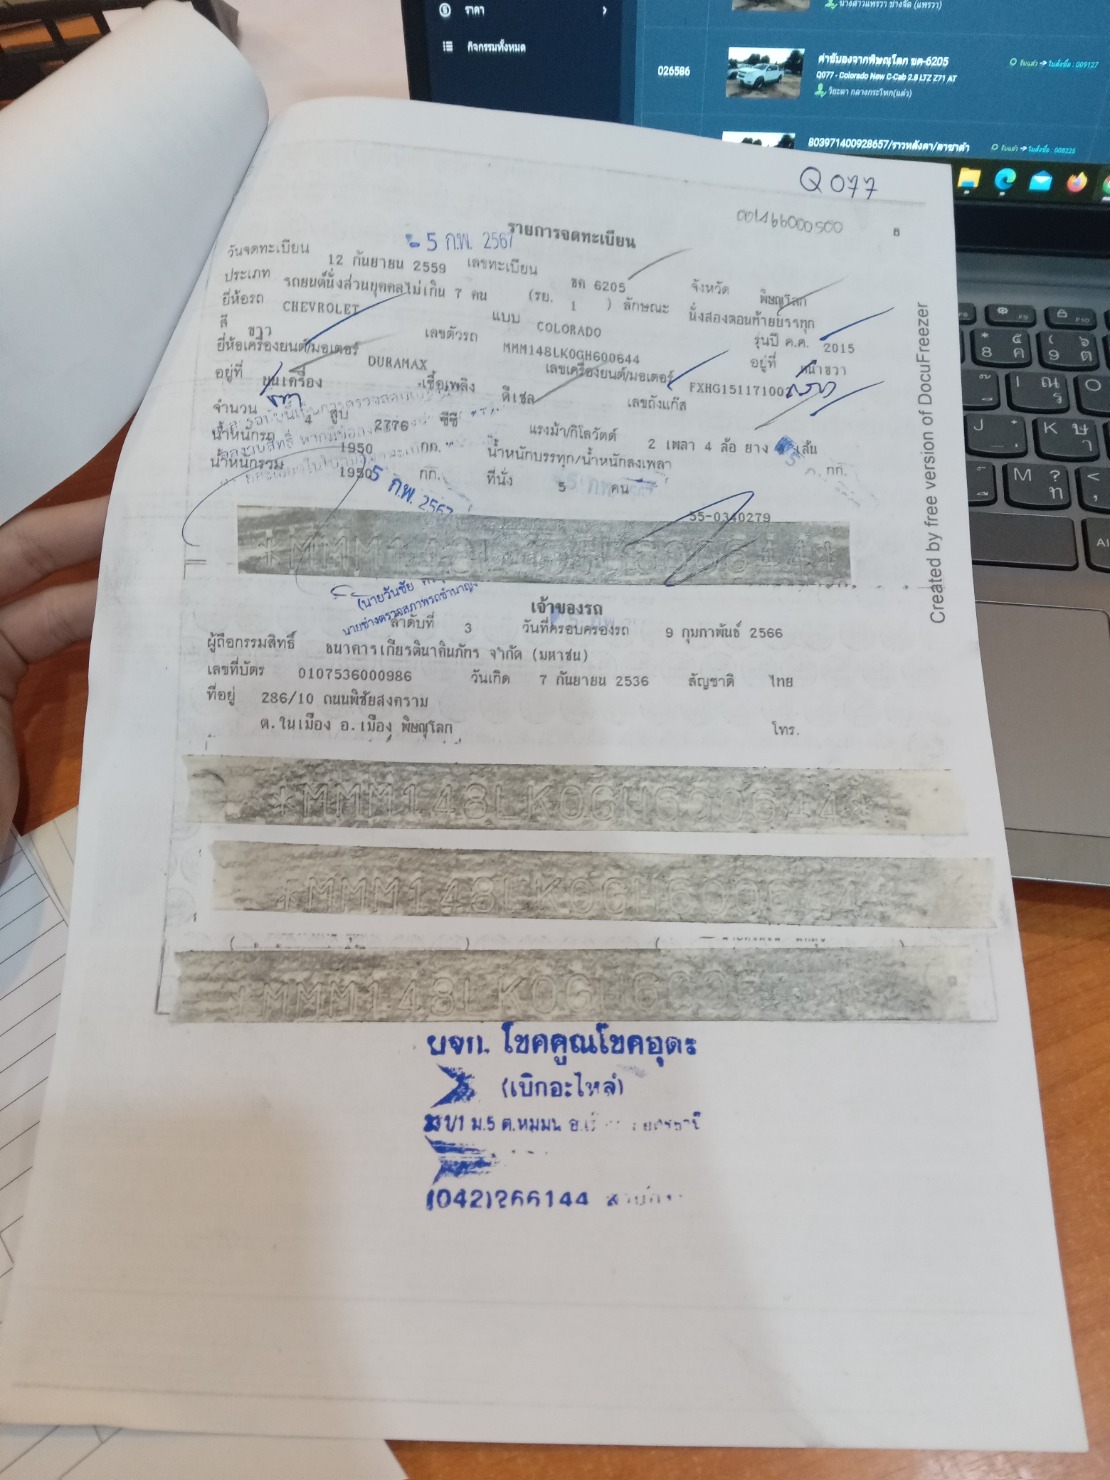 ราคา
กิจกรรมทั้งหมด
026586
ค่าขับของจากพิษณุโลก ขค-6205
Q077 - Colorado New C-Cab 2.8 LTZ Z71 AT
803971400928657/ราวหลังคา/ลาซาด้า
Q077
001466000500
8
รายการจดทะเบียน
- 5 ก.พ. 2567
วันจดทะเบียน 12 กันยายน 2559 เลขทะเบียน ขค 6205 จังหวัด พิษณุโลก
ประเภท รถยนต์นั่งส่วนบุคคลไม่เกิน 7 คน (รย. 1 ) ลักษณะ นั่งสองตอนท้ายบรรทุก
ยี่ห้อรถ CHEVROLET แบบ COLORADO รุ่นปี ค.ศ. 2015
สี ขาว เลขตัวรถ MMM148LK0GH600644 อยู่ที่ หน้าขวา
ยี่ห้อเครื่องยนต์/มอเตอร์ DURAMAX เลขเครื่องยนต์/มอเตอร์
อยู่ที่ บนเครื่อง เชื้อเพลิง ดีเซล เลขถังแก๊ส
จำนวน 4 สูบ 2776 ซีซี แรงม้า/กิโลวัตต์ 2 เพลา 4 ล้อ ยาง เส้น
น้ำหนักรถ 1950 กก. น้ำหนักบรรทุก/น้ำหนักลงเพลา กก.
น้ำหนักรวม 1950 กก. ที่นั่ง 5 คน
5 ก.พ. 2567
55-0340279
(นายวันชัย
นายช่างตรวจสภาพรถชำนาญ
เจ้าของรถ
ลำดับที่ 3 วันที่ครอบครองรถ 9 กุมภาพันธ์ 2566
ผู้ถือกรรมสิทธิ์ ธนาคารเกียรตินาคินภัทร จำกัด (มหาชน)
เลขที่บัตร 0107536000986 วันเกิด 7 กันยายน 2536 สัญชาติ ไทย
ที่อยู่ 286/10 ถนนพิชัยสงคราม
ต.ในเมือง อ.เมือง พิษณุโลก โทร.
*MMM148LK0GH600644
*MMM148LK0GH60064
*MMM148LK0GH
ผจก. โชคคูณโชคอุดร
(เบิกอะไหล่)
ม.5 ต.หมูม่น
(042)266144
Created by free version of DocuFreezer